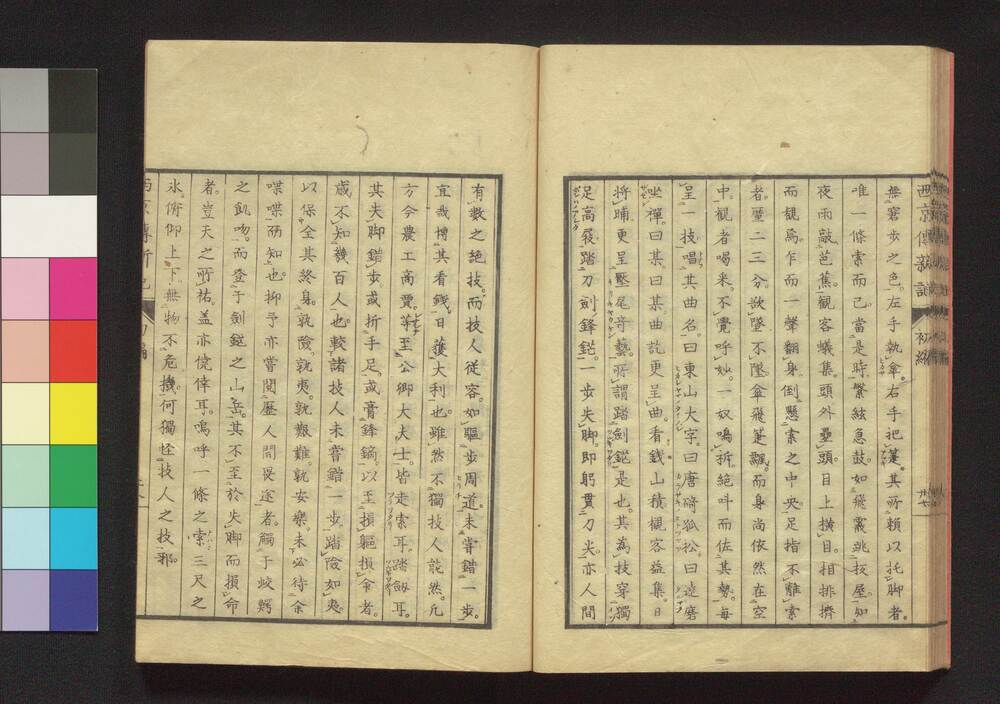 無窘步之色。左手執傘。右手把蓬。其所頼以托脚者。
唯一條索而已。當是時。繁絃急鼓。如飛霰跳板屋。知
夜雨敲芭蕉。観客蟻集。頭外疊頭。目上横目。相排擠
而観焉。乍而一聲翻身倒懸索之中央。足指不離索
者。僅二三分。欲墜不墜。傘飛蓬飄。而身尚依然在空
中。観者喝采。不覺呼妙。一奴鳴柝絶叫而佐其勢。毎
呈一技。唱其曲名。曰東山大字。曰唐碕狐松。曰達磨
坐禪。曰某曰某。曲訖更呈曲。看錢山積。観客益集。日
將晡更呈壓尾奇藝。所謂踏劍鋩是也。其為技。穿獨
足高屐。踏刀劍鋒鋩。一歩失脚。即躬貫刀尖。亦人間
有數之絶技。而技人従容。如驅歩周道。未嘗錯一歩。
宜哉博其看錢。日獲大利也。雖然不獨技人詑然。凡
方今農工商賈。等至公卿大夫士。皆走索耳。踏劔耳。
其失脚錯歩。或折手足。或膏鋒鏑。以至損軀損命者。
歳不知幾百人也。較諸技人未嘗錯一歩。踏險如夷
以保全其終身。孰險孰夷。孰艱難。孰安樂。未必待余
喋喋而知也。抑予亦嘗閲歷人間畏途者。觸于蛟鰐
之飢吻。而登于劍鋩之山岳。其不至於失脚而損命
者。豈天之所祐。盖亦僥倖耳。嗚呼一條之索。三尺之
氷。俯仰上下。無物不危機。何獨怪技人之技邪。